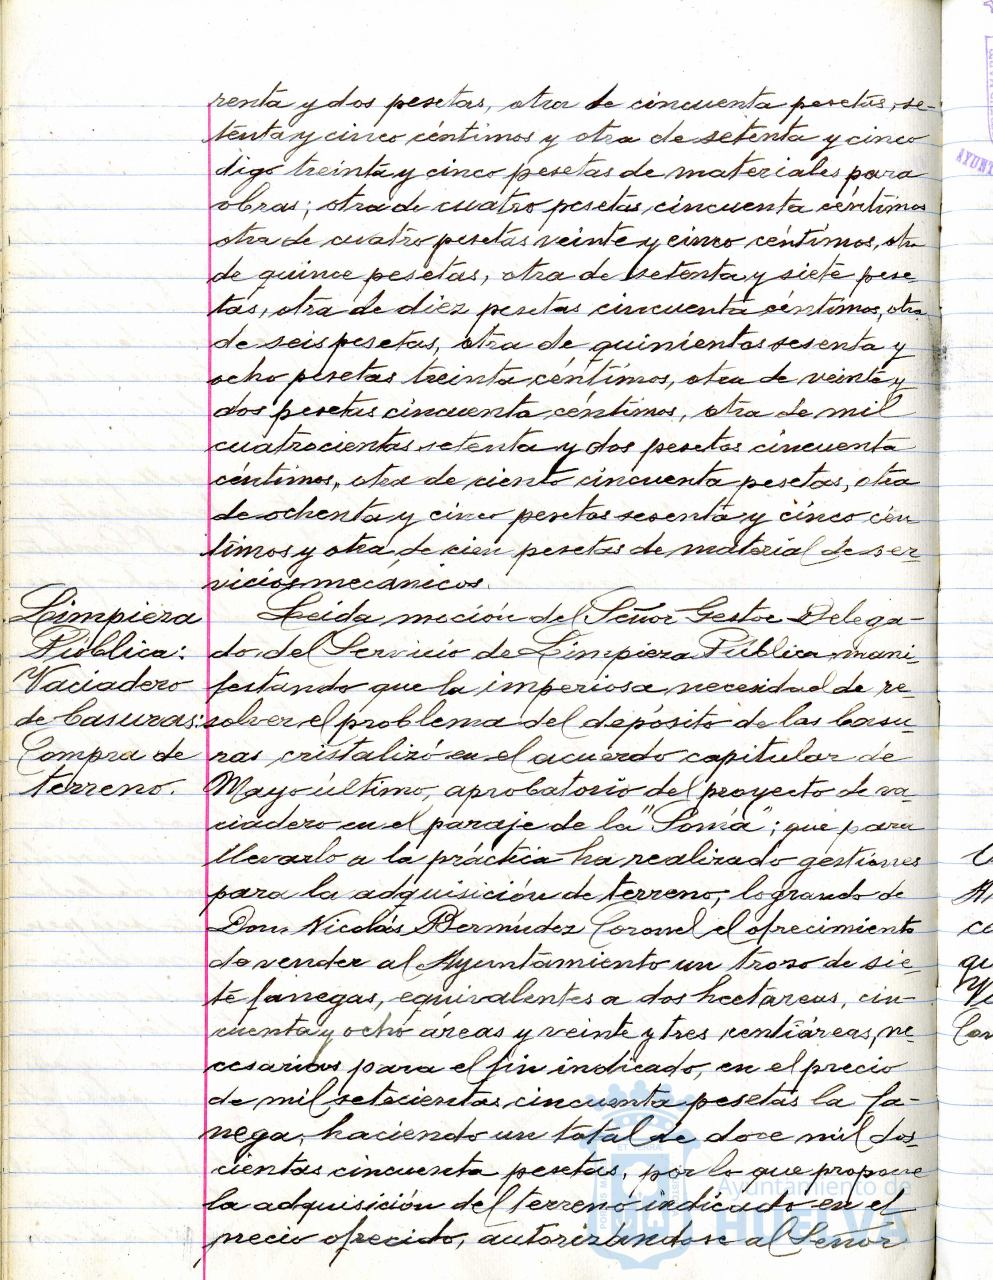 renta y dos pesetas, otra de cincuenta pesetas, se-
tenta y cinco céntimos y otra de setenta y cinco
digo treinta y cinco pesetas de materiales para
obras; otra de cuatro pesetas cincuenta céntimos
otra de cuatro pesetas veinte y cinco céntimos, otra
de quince pesetas, otra de setenta y siete pese-
tas, otra de diez pesetas cincuenta céntimos, otra
de seis pesetas, otra de quinientas sesenta y
ocho pesetas treinta céntimos, otra de veinte y
dos pesetas cincuenta céntimos, otra de mil
cuatrocientas setenta y dos pesetas cincuenta
céntimos, otra de ciento cincuenta pesetas, otra
de ochenta y cinco pesetas sesenta y cinco cén
timos y otra de cien pesetas de material de ser-
vicios mecánicos.
Limpieza
Pública:
Vaciadero
de basuras:
Compra de
terreno.
Leida moción del Señor Gestor Delega-
do del Servicio de Limpieza Pública mani-
festando que la imperiosa necesidad de re-
solver el problema del depósito de las basu-
ras cristalizó en el acuerdo capitular de
Mayo último, aprobatorio del proyecto de va-
ciadero en el paraje de la "Joma"; que para
llevarlo a la práctica ha realizado gestiones
para la adquisición de terreno, logrando de
Don Nicolás Bermúdez Coronel el ofrecimiento
de vender al Ayuntamiento un trozo de sie-
te fanegas, equivalentes a dos hectareas, cin-
cuenta y ocho áreas y veinte y tres centiáreas, ne-
cesarias para el fin indicado, en el precio
de mil setecientas cincuenta pesetas la fa-
nega, haciendo un total de doce mil dos-
cientas cincuenta pesetas, por lo que propone
la adquisición del terreno indicado en el
precio ofrecido, autorizándose al Señor
Ayuntamiento de
HUELVA